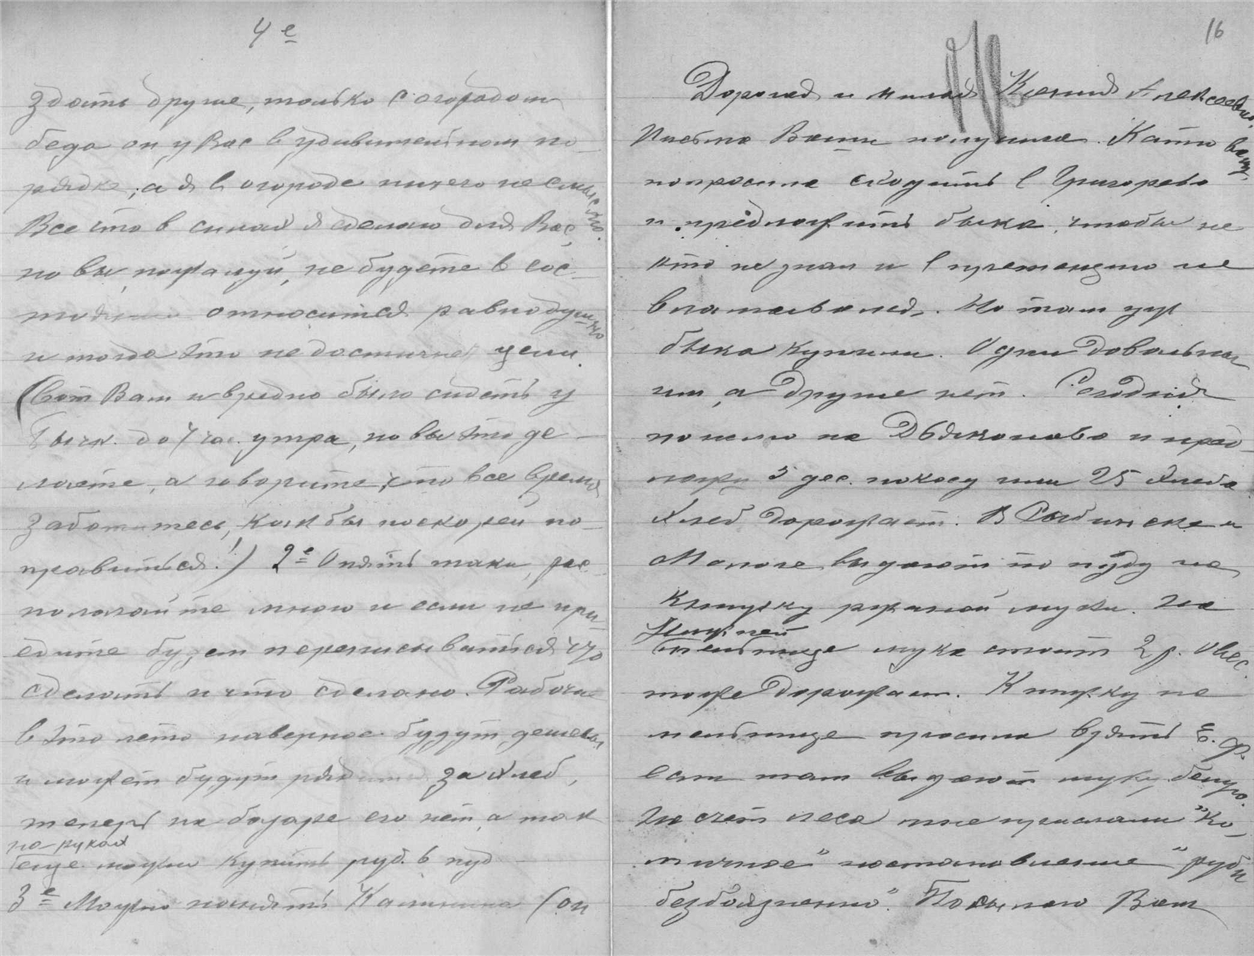 4е
здоить друже, только с огородом
беда он у Вас в удивительном по-
рядке, а я в огороде ничего не смыслю.
Все что в силах я сделаю для Вас,
но вы, пожалуй, не будете в сос-
тоянии относиться равнодушно
и тогда это не достигнет цели
(Вот Вам и вредно было сидеть у
до 4 час. утра, но вы это де-
лаете, а говорите, что все время
заботитесь, как бы поскорей по-
правиться!) 2е Опять таки, рас-
полагайте мною и если не при-
едите будем переписываться что
сделать и что сделано. Рабочие
в это лето наверное будут дешевы
и может будут за хлеб,
теперь на базаре его нет, а так
на руках
еще можно купить руб. 6 пуд
3е Можно нанять Калинина (он
16
Дорогая и милая Ксения Алексеевна,
Письма Ваши получила. Катю вашу
попросила сходить в Григорево
и предложить быка, чтобы не
кто не знал и в не
вламывался. Но там уж
быка купили. Одни довольны
им, а другие нет. Сегодня
пошлю на Дьяконово и пред-
ложу 3 дес. покосу или 25 хлеба
Хлеб дорожает. В Рыбинске и
Мологе выдают по пуду на
книжку ржаной муки. На
мельнице мука стоит 2 р. Овес
тоже дорожает. Книжку на
мельнице просила взять Е. Ф.
Если там выдают муку, беру.
На счет леса мне прислали "Ко-
мичное" постановление "руби
безбоязненно". Посылаю Вам